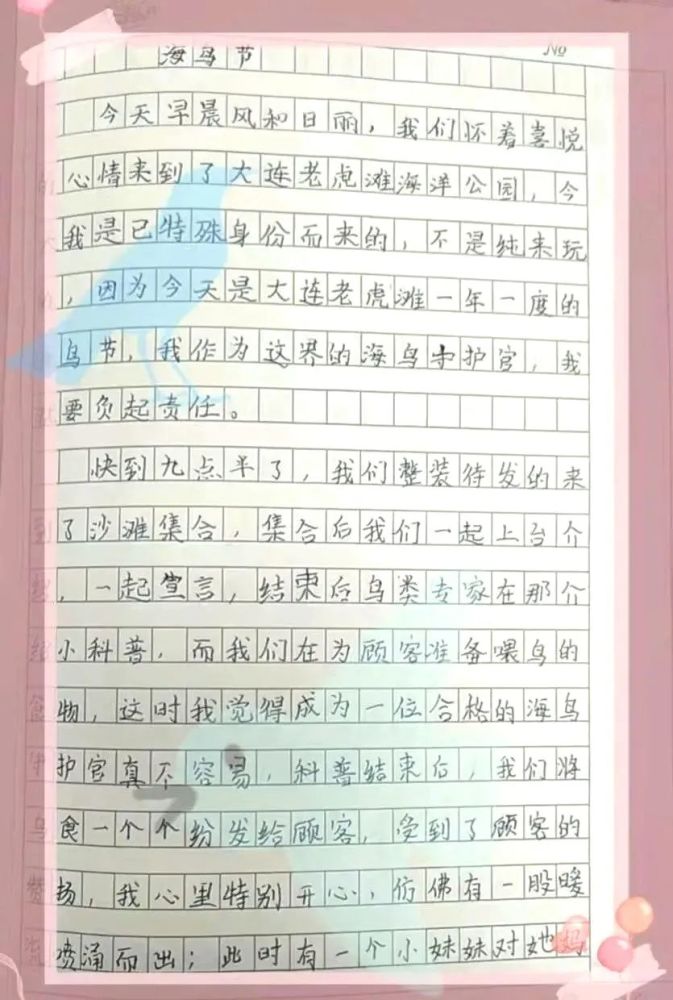 海鸟节
No
今天早晨风和日丽，我们怀着喜悦
的心情来到了大连老虎滩海洋公园，今
天我是已特殊身份而来的，不是纯来玩
的，因为今天是大连老虎滩一年一度的
鸟节，我作为这界的海鸟守护官，我
就要负起责任。
快到九点半了，我们整装待发的来
到了沙滩集合，集合后我们一起上台介
绍，一起宣言，结束后鸟类专家在那介
绍小科普，而我们在为顾客准备喂鸟的
食物，这时我觉得成为一位合格的海鸟
守护官真不容易，科普结束后，我们将
鸟食一个个纷发给顾客，受到了顾客的
赞扬，我心里特别开心，仿佛有一股暖
流喷涌而出；此时有一个小妹妹对她妈